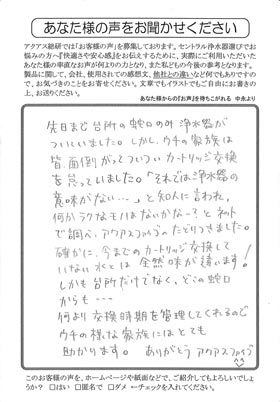 あなた様の声をお聞かせください
アクアス総研では「お客様の声」を募集しております。セントラル浄水器選びでお
悩みの方へ『快適さや安心感』をお伝えするために、実際にご利用いただいた
あなた様の率直なお声が何よりの力となり、また私どもの今後の参考となります。
製品に関して、会社、使用されての感想文、他社との違いなど何でもありますので、
で、お気づきのことをお寄せください。文章でもイラストでもご自由にお書きの
上、お送りください。
あなた様からの『お声』を待ちこがれる 中央より
先日まで台所の蛇口のみ浄水器が
ついていました。しかし、ウチの家族は
皆、面倒がってついついカートリッジ交換
を怠っていました。「それでは浄水器の
意味がない…」と知人に言われ、
何かラクなモノはないかな~?とネット
で調べ、アクアスファイブにたどりつきました。
確かに、今までのカートリッジ交換して
いない水とは全然味が違います!
しかも台所だけでなく、どこの蛇口
からも…
何より交換時期を管理してくれるので
ウチの様な家族にはとても
助かります。ありがとうアクアスファイブ
^^
このお客様の声を、ホームページや紙面などで、ご紹介してもよろしいでしょ
うか? □はい □匿名で □ダメ ←チェックを入れてください